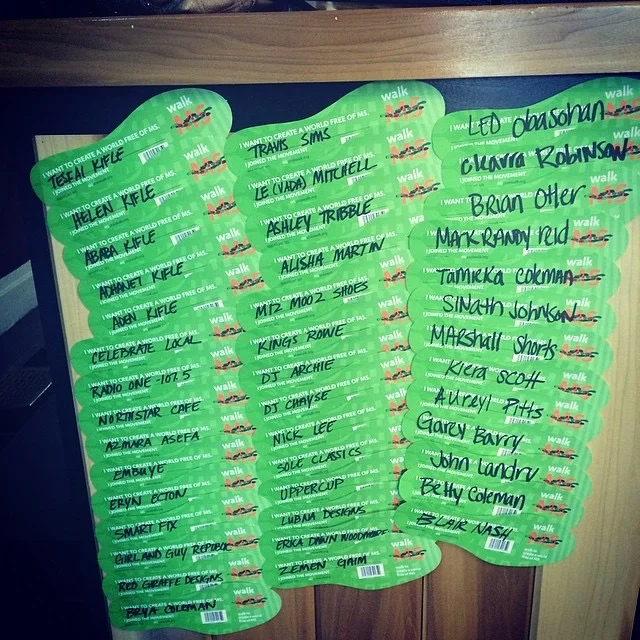 walk MS
I WANT TO CREATE A WORLD FREE OF MS.
I JOINED THE MOVEMENT.
TESFAI KIFLE
HELEN KIFLE
ABABA KIFLE
ADHANET KIFLE
ADEN KIFLE
CELEBRATE LOCAL
RADIO ONE -107.5
NORTHSTAR CAFE
AZMARA ASEFA
ERYN ECTON
SMART FIX
GIRL AND GUY REPUBLIC
RED GIRAFFE DESIGNS
BRYA COLEMAN
walk MS
I WANT TO CREATE A WORLD FREE OF MS.
I JOINED THE MOVEMENT.
TRAVIS SIMS
LE (VADA) MITCHELL
ASHLEY TRIBBLE
ALISHA MARTIN
MTZ MOOZ SHOES
KINGS ROWE
DJ ARCHIE
DJ CHAYSE
NICK LEE
SOLE CLASSICS
UPPERCUP
LUBNA DESIGNS
ERICA DAWN WOODMORE
ZEMEN GAIM
walk MS
LEO Obasohan
Cleavra Robinson
Brian Otler
MARK RANDY reid
Tamieka Coleman
SINath Johnson
MARShall Shorts
Kiera Scott
Aureyl Pitts
Garey Barry
John Landry
Betty Coleman
BLAIR NASH